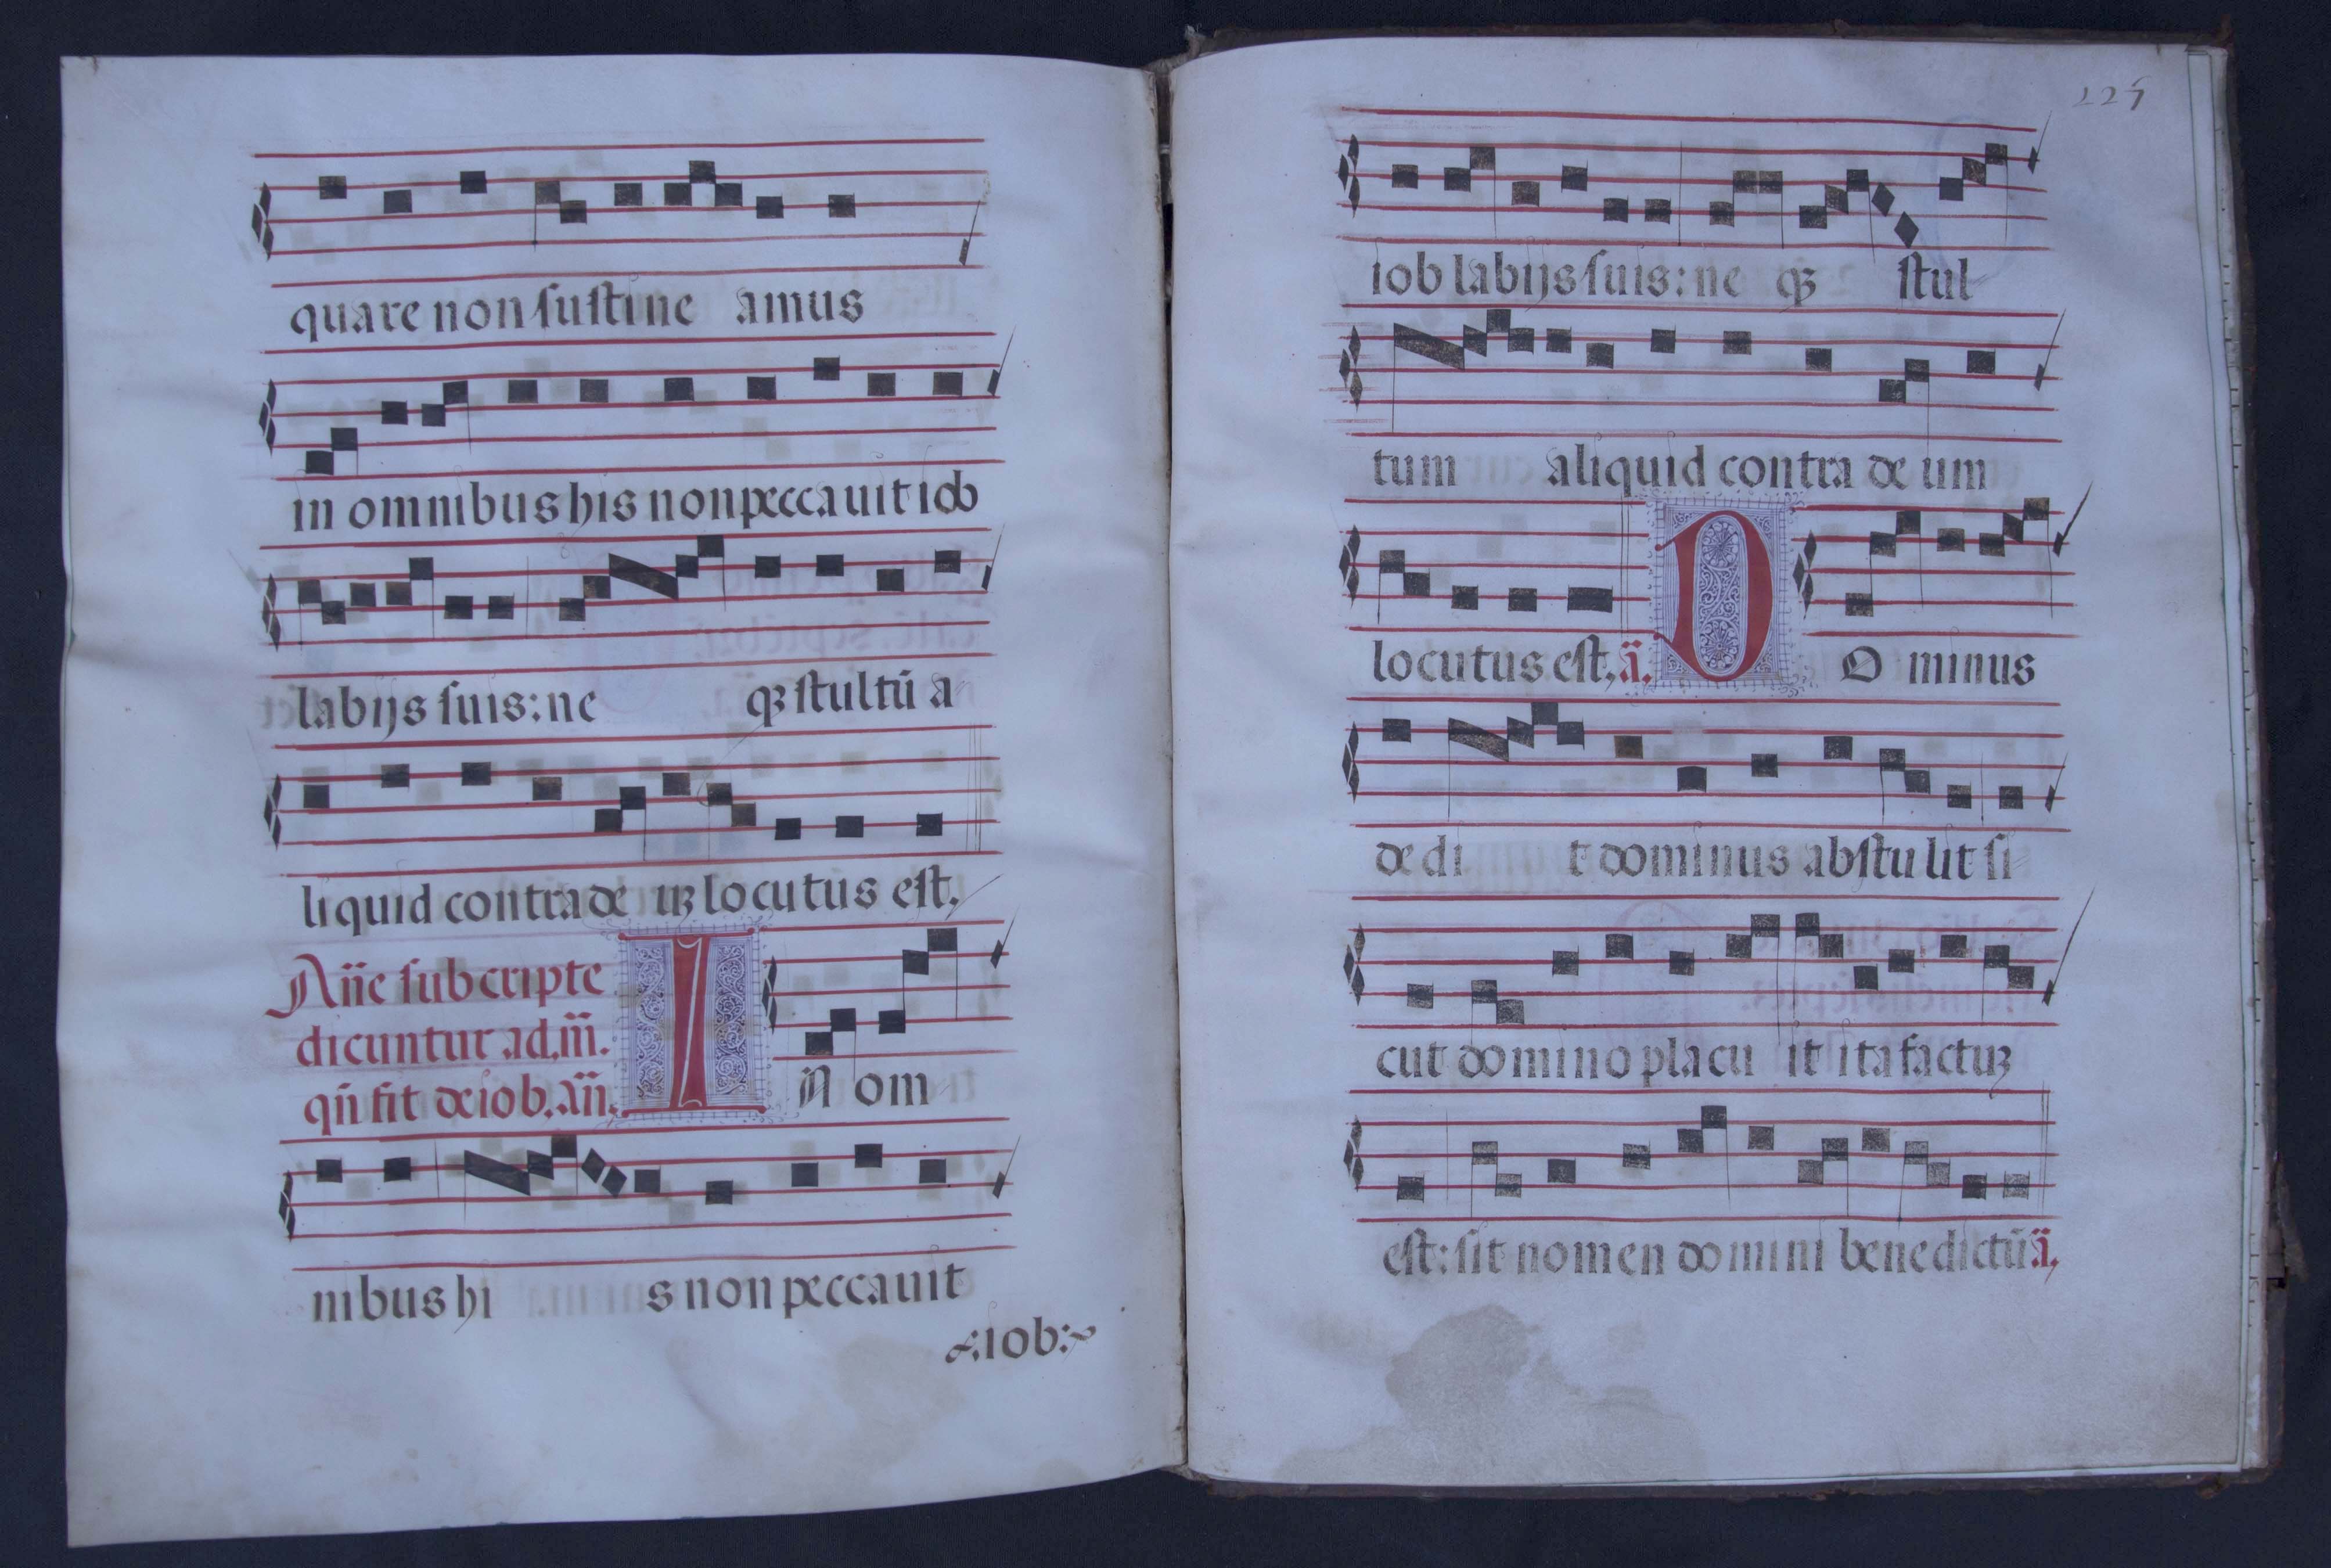 quare non sustine amus
in omnibus his non peccauit iob
labijs suis: ne qꝫ stultū a
liquid contra de uꝫ locutus est.
Añe subcripte
dicuntur ad. m̄.
qn̄ fit de iob. añ.
I N om
nibus hi s non peccauit
iob:
225
iob labijs suis: ne qꝫ stul
tum aliquid contra de um
locutus est. ā. D O minus
de di t dominus abstulit si
cut domino placu it ita factuꝫ
est: sit nomen domini benedictū ā.